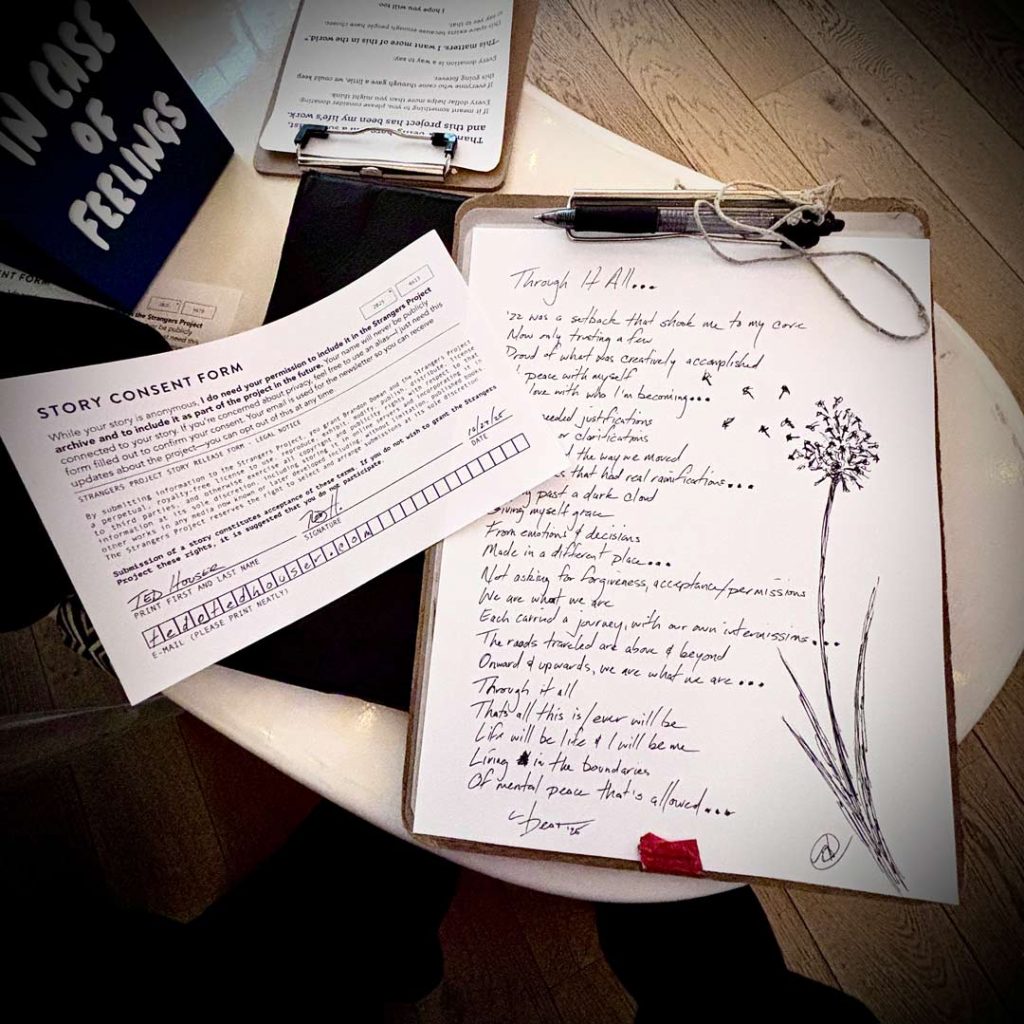 IN CASE
OF
FEELINGS
I hope you will too
to say yes to that.
This space exists because enough people have chosen
"This matters. I want more of this in the world."
every donation is a way to say:
this going forever.
If everyone who came through gave a little, we could keep
Every dollar helps more than you might think
If it meant something to you, please consider donating
and this project has been my life's work.
STORY CONSENT FORM
While your story is anonymous, I do need your permission to include it in the Strangers Project
archive and to include it as part of the project in the future. Your name will never be publicly
connected to your story. If you're concerned about privacy, feel free to use an alias—I just need this
form filled out to confirm your consent. Your email is used for the newsletter so you can receive
updates about the project—you can opt out of this at any time.
STRANGERS PROJECT STORY RELEASE FORM - LEGAL NOTICE
By submitting information to the Strangers Project, you grant Brandon Doman and the Strangers Project
a perpetual, royalty-free license to use, reproduce, modify, publish, distribute, license
information at its sole discretion, including storing it in online
other works in any media now known or later developed
The Strangers Project reserves the right to select and arrange submissions at its sole discretion
Submission of a story constitutes acceptance of these terms. If you do not wish to grant the Strangers
Project these rights, it is suggested that you do not participate.
TED HOUSER
PRINT FIRST AND LAST NAME
SIGNATURE
DATE
ted@tedhouser.com
E-MAIL (PLEASE PRINT NEATLY)
Through It All...
'22 was a setback that shook me to my core
Now only trusting a few
Proud of what was creatively accomplished
peace with myself
love with who I'm becoming...
needed justifications
or clarifications
the way we moved
that had real ramifications...
past a dark cloud
Giving myself grace
From emotions & decisions
Made in a different place...
Not asking for forgiveness, acceptance/permissions
We are what we are
Each carried a journey, with our own intermissions...
The roads traveled are above & beyond
Onward & upwards, we are what we are...
Through it all
Thats all this is/ever will be
Life will be life & I will be me
Living in the boundaries
Of mental peace that's allowed...